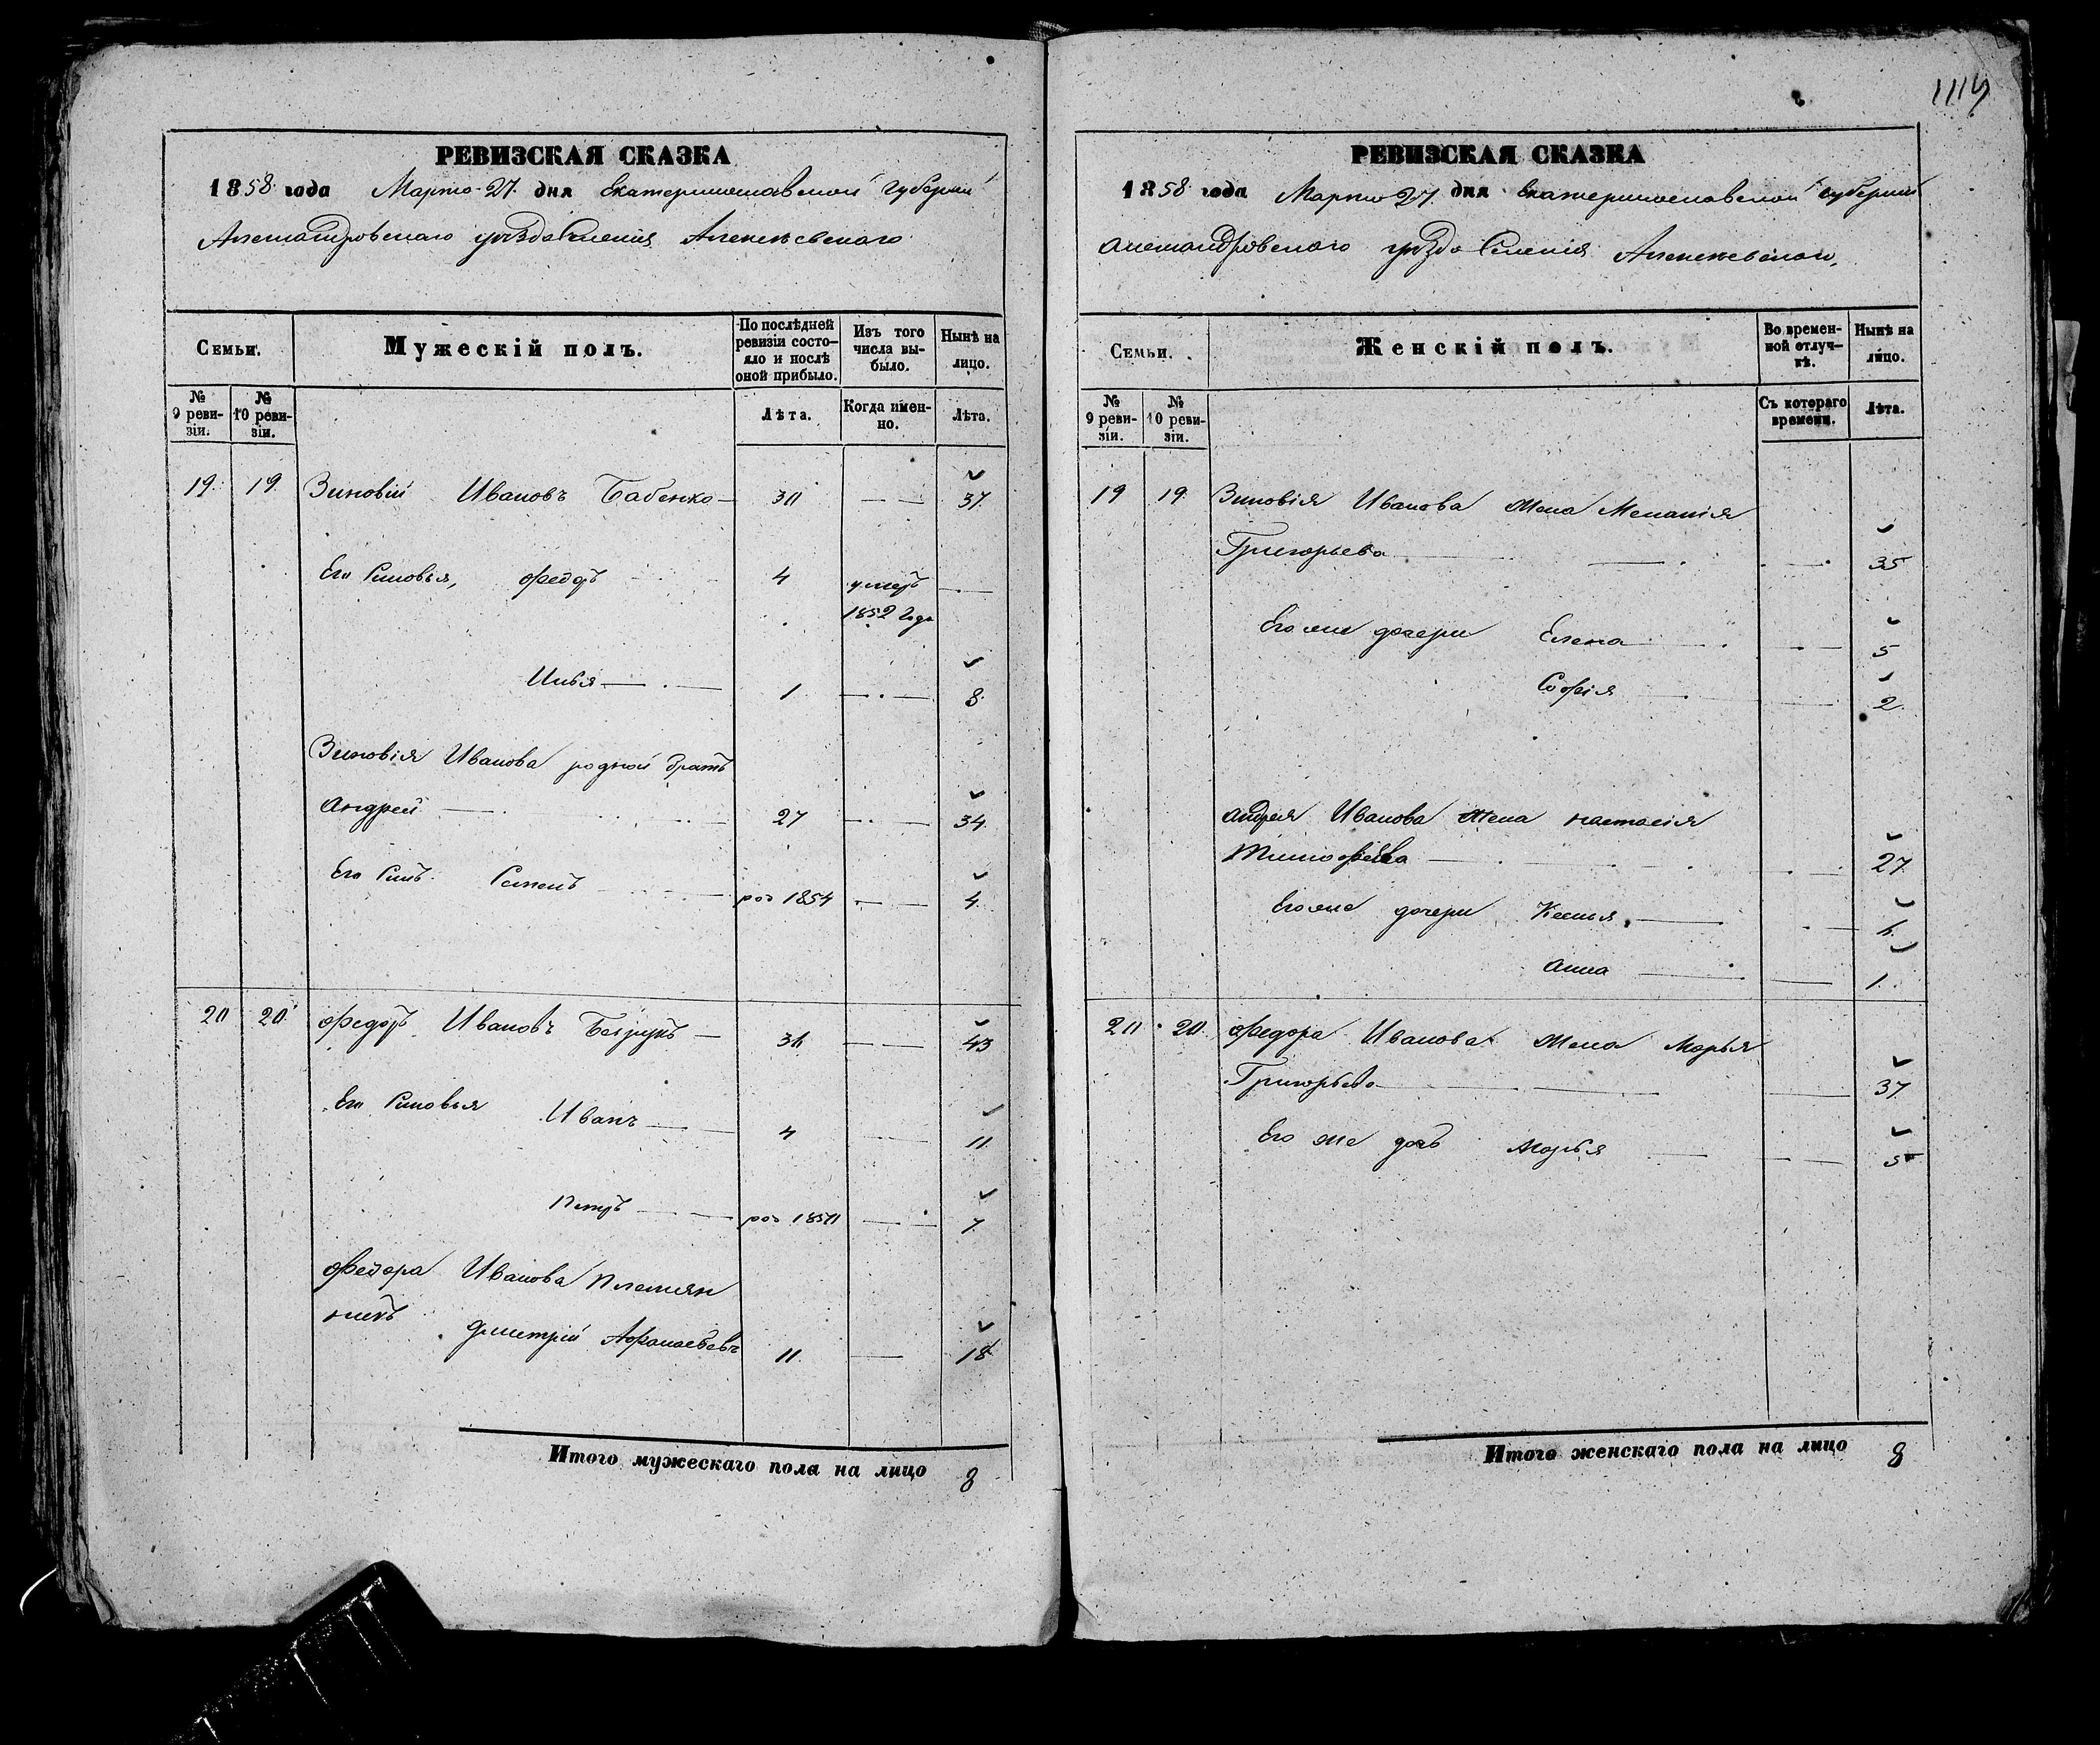 1114
РЕВИЗСКАЯ СКАЗКА
1858 года Марта 27 дня Екатеринославской губерніи
Александровскаго уѣзда Селенія Алексѣевскаго
Семьи. Мужескій полъ. По послѣдней ревизіи состояло и послѣ оной прибыло. Изъ того числа выбыло. Нынѣ на лицо.
№ 9 ревизіи. № 10 ревизіи. Лѣта. Когда именно. Лѣта.
19 19 Зиновій Ивановъ Бабенко 30 37
Его Сыновья, Федоръ 4 умеръ
1852 года
Илья 1 8
Зиновія Иванова родной братъ
Андрей 27 34
Его Сынъ Семенъ род 1854 4
20 20 Федоръ Ивановъ 36 43
Его Сыновья Иванъ 4 11
Петръ род 1850 7
Федора Иванова племян
никъ Дмитрій Афанасьевъ 11 18
Итого мужескаго пола на лицо 8
РЕВИЗСКАЯ СКАЗКА
1858 года Марта 27 дня Екатеринославской губерніи
Александровскаго уѣзда Селенія Алексѣевскаго
Семьи. Женскій полъ. Во временной отлучкѣ. Нынѣ на лицо.
№ 9 ревизіи. № 10 ревизіи. Съ котораго времени. Лѣта.
19 19 Зиновія Иванова жена Меланія
Григорьева 35
Его же дочери Елена 5
Софія 2
Андрея Иванова жена Настасія
Тимофѣева 27
Его же дочери Ксенія 6
Анна 1
20 20 Федора Иванова жена Марья
Григорьева 37
Его же дочь Марья 5
Итого женскаго пола на лицо 8